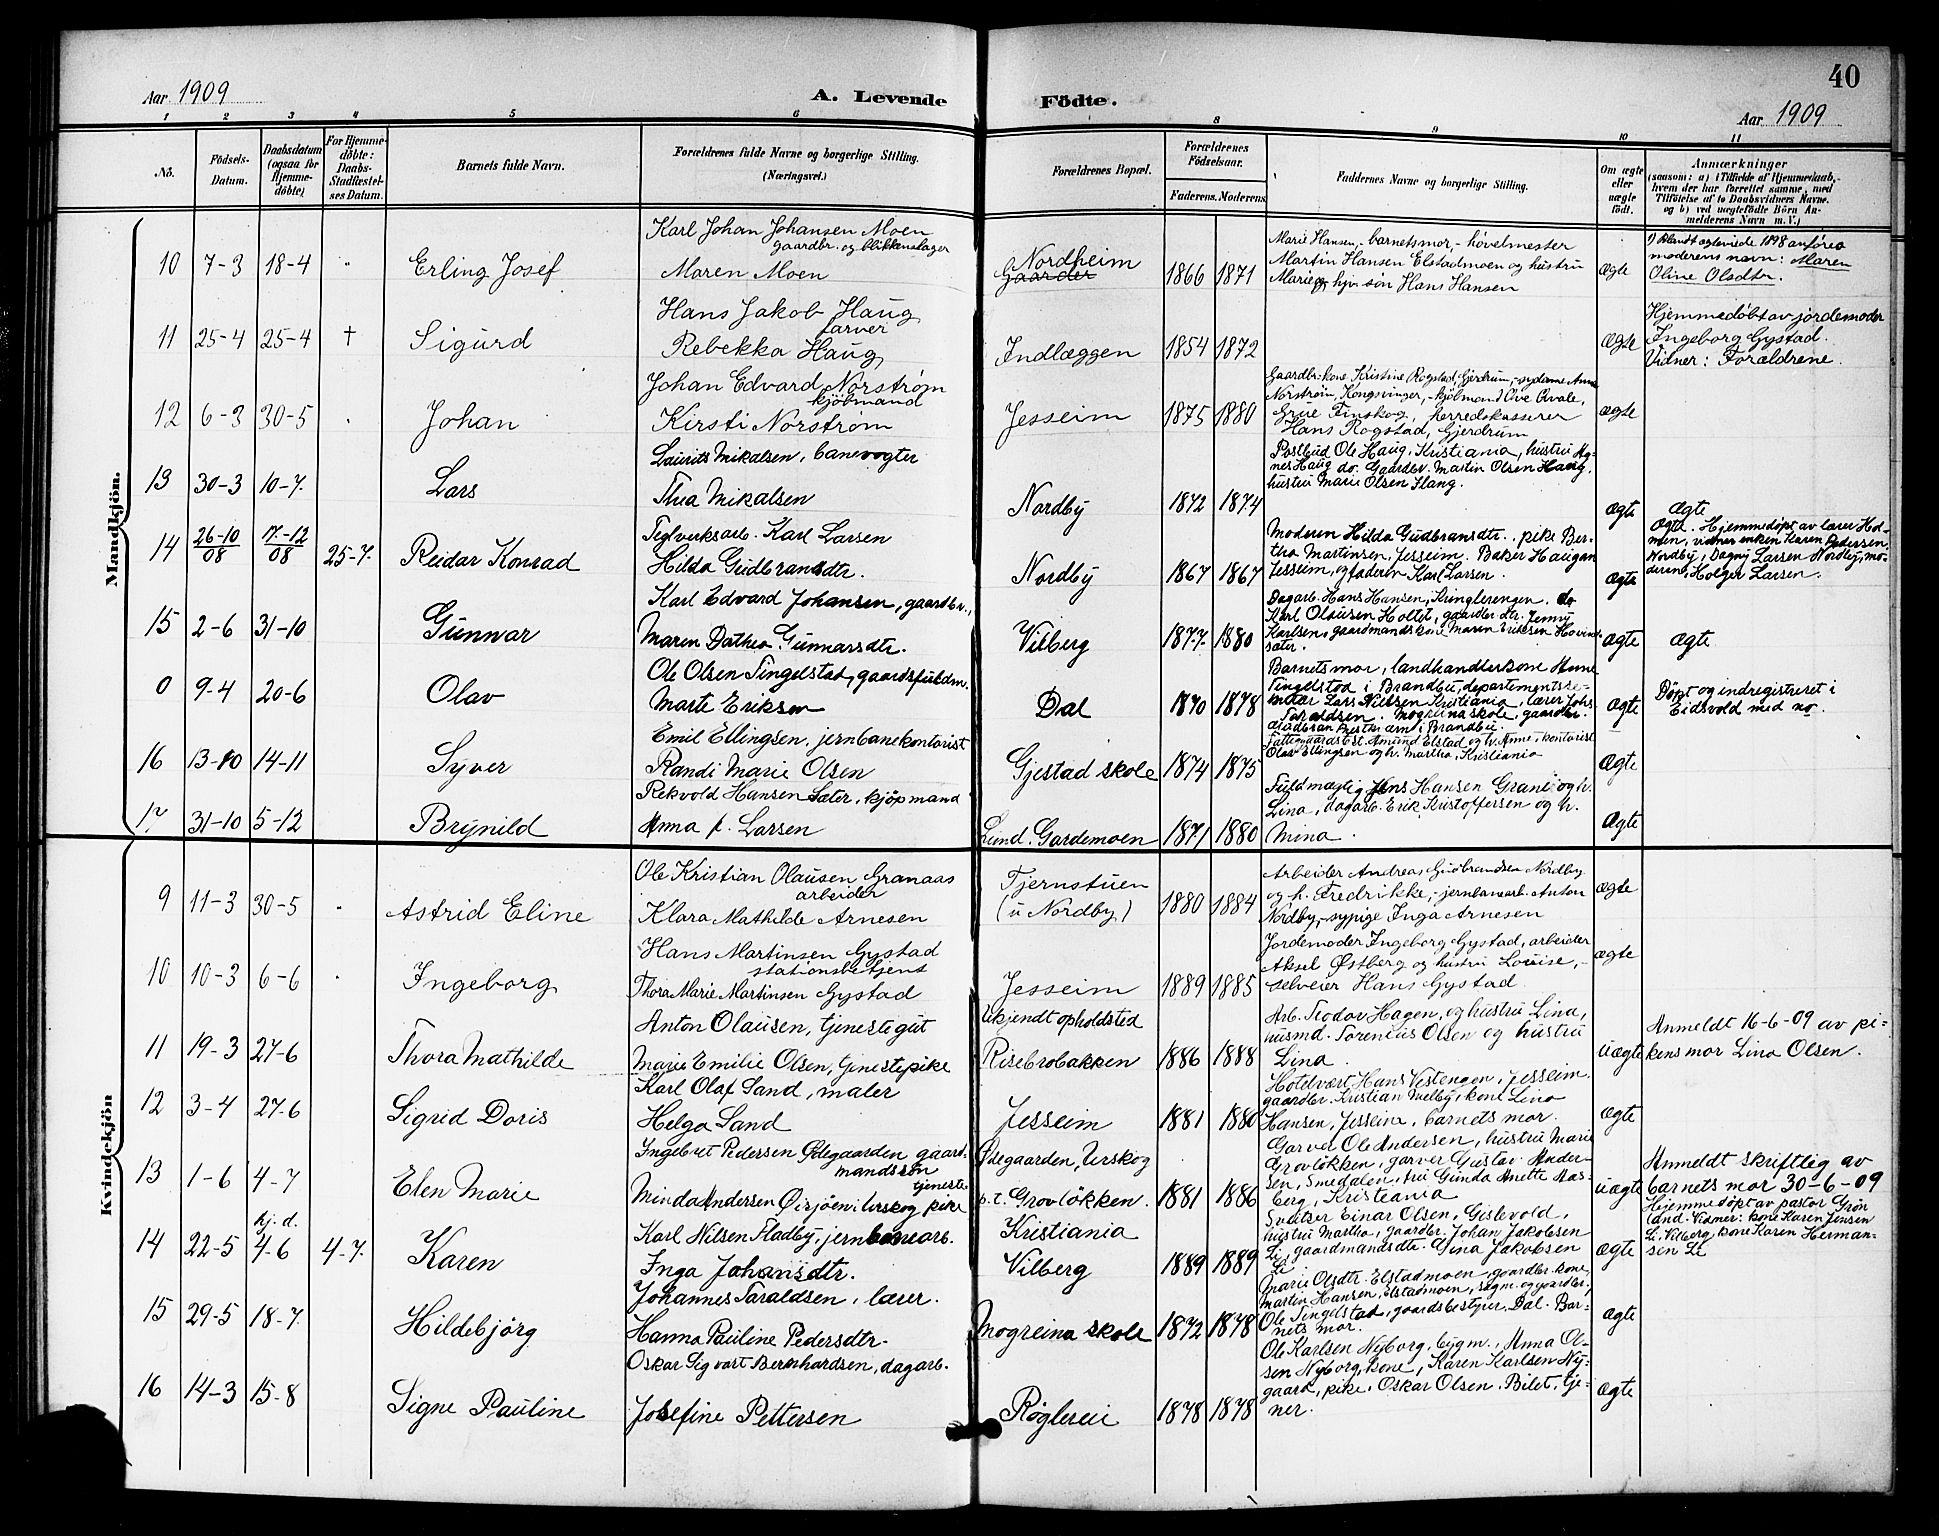 40
Aar 1909
A. Levende
Födte.
Aar 1909
1 2 3 4 5 6 8 9 10 11
No.
Födsels-Datum.
Daabsdatum (ogsaa for Hjemme-döbte)
For Hjemme-döbte: Daabs-Stadfæstel-ses Datum.
Barnets fulde Navn.
Forældrenes fulde Navne og borgerlige Stilling.
(Næringsvei.)
Forældrenes Bopæl.
Forældrenes Födselsaar.
Faderens. Moderens.
Faddernes Navne og borgerlige Stilling.
Om ægte eller uægte födt.
Anmærkninger
(saasom: a) i Tilfælde af Hjemmedaab,
hvem der har forrettet samme, med
Tilföielse af to Daabsvidners Navne.
og b) ved uægtefödte Börn An-
melderens Navn m. V.)
Mandkjön.
10 7-3 18-4 " Erling Josef
Karl Johan Johansen Moen
gaardbr. og blikkenslager
Maren Moen
Nordheim
Gaarder
1866 1871
Marie Hansen, - barnets mor, - hövelmester
Martin Hansen Elstadmoen og hustru
Marie og hjv. sön Hans Hansen
ægte
1) Blandt agleviede 1898 anföres
moderens navn: Maren
Oline Olsdtr.
11 25-4 25-4 † Sigurd
Hans Jakob Haug
garver
Rebekka Haug
Indlæggen
1854 1872
ægte
Hjemmedöbt av jordemoder
Ingeborg Gystad.
Vidner: Forældrene.
12 6-3 30-5 . Johan
Johan Edvard Norstrøm
kjöbmand
Kirsti Norstrøm
Jesseim
1875 1880
Gaardbr.kone Kristine Rogstad, Gjerdrum, - sydame Anna
Norstrøm, Kongsvinger, - kjöbmand Ove Qvale,
Grue Finskog, herredskasserer
Hans Rogstad, Gjerdrum
ægte
13 30-3 10-7. Lars
Laurits Mikalsen, banevogter
Thea Mikalsen
Nordby
1872 1874
Postbud Ole Haug, Kristiania, hustru Ag-
nes Haug do. Gaardbr. Martin Olsen Haug,
hustru Marie Olsen Haug.
ægte
Ægte
14 26-10/08 17-12/08 25-7. Reidar Konrad
Teglverksarb. Karl Larsen
Hilda Gudbransdtr.
Nordby
1867 1867
Moderen Hilda Gudbransdtr., pike Ber-
tha Martinsen, Jesseim. Baker Haugan
Jesseim, og faderen Karl Larsen.
ægte
Ægte. Hjemmedöpt av lærer Hol-
men, vidner enken Karen Pedersen
Nordby, Dagny Larsen Nordby, mo-
deren, Holger Larsen.
15 2-6 31-10 Gunnar
Karl Edvard Johansen, gaardbr.,
Maren Dathea Gunnarsdtr.
Vilberg
1877. 1880
Dagarb. Hans Hansen, Kringlerengen. do
Karl Olausen Holtet, gaardbr. dtr. Jenny
Karlsen, gaardmandskone Maren Eriksen Hovind-
sæter.
ægte
Ægte
0 9-4 20-6 Olav
Ole Olsen Tingelstad, gaardsfuldm.
Marte Eriksen
Dal
1870 1878
Barnets mor, landhandlerkone Anne
Tingelstad i Brandbu, departementsse-
kretær Lars Nielsen Kristiania, lærer Johs
Taraldsen. Mogreina skole, gaardbr.
Gudbran Prestkværn i Brandbu.
ægte
Döpt og indregistreret i
Eidsvold med no.
16 13-10 14-11 Syver
Emil Ellingsen, jernbanekontorist
Randi Marie Olsen
Gjestad skole
1874 1875
Fattiggaardsbest. Amund Elstad og h. Anne, kontorist
Olav Ellingsen og h. Martha, Kristiania
ægte
17 31-10 5-12 Brynild
Rekvold Hansen Sæter, kjöpmand
Anna f. Larsen
Lund. Gardemoen
1871 1880
Fuldmægtig Jens Hansen Grani og h.
Lina, dagarb. Erik Kristoffersen og h.
Mina.
ægte
Kvindekjön
9 11-3 30-5 . Astrid Eline
Ole Kristian Olausen Granaas
arbeider
Klara Mathilde Arnesen
Tjernstuen
(u Nordby)
1880 1884
Arbeider Andreas Gudbrandsen Nordby
og h. Fredrikke, - jernbanearb. Anton
Nordby, - sypige Inga Arnesen
ægte
10 10-3 6-6 . Ingeborg
Hans Martinsen Gystad
stationsbetjent
Thora Marie Martinsen Gystad
Jesseim
1889 1885
Jordemoder Ingeborg Gystad, arbeider
Aksel Østberg og hustru Louise, -
selveier Hans Gystad
ægte
11 19-3 27-6 Thora Mathilde
Anton Olausen, tjenestegut
Marie Emilie Olsen, tjenestepike
Ukjendt opholdsted
Risebrobakken
1886 1888
Arb. Teodor Hagen, og hustru Lina,
husmd. Torenius Olsen og hustru
Lina
uægte
Anmeldt 16-6-09 av pi-
kens mor Lina Olsen.
12 3-4 27-6 Sigrid Doris
Karl Olaf Sand, maler
Helga Sand
Jesseim
1881 1880
Hotelvært Hans Vestengen, Jesseim.
gaardbr. Kristian Melby, kone Lina
Hansen, Jesseim, barnets mor.
ægte
13 1-6 4-7 Elen Marie
Ingebret Pedersen Ødegaarden gaard-
mandssön
tjeneste
Minda Andersen Øisjöen i Urskog pike
Ødegaarden, Urskog
p.t. Grovlökken.
1881 1886
Garver Ole Andersen, hustru Marie
Grovlökken, garver Gustav Ander-
sen, Smedalen, fru Gunda Anette Aas-
berg, Kristiania
uægte
Anmeldt skriftlig av
barnets mor 30-6-09
14 22-5 hj. d. 4-6 4-7. Karen
Karl Nilsen Fladby, jernbanearb.
Inga Johansdtr.
Kristiania
Vilberg
1889 1889
Sveitser Einar Olsen, Gislevold,
hustru Martha, gaardbr. Johan Jakobsen
Li, gaardmandsdtr. Gina Jakobsen
Li
ægte
Hjemmedöpt av pastor Grön
land. Vidner: kone Karen Jensen
Li, Vilberg, kone Karen Herman-
sen Li
15 29-5 18-7. Hildebjörg
Johannes Taraldsen, lærer.
Hanna Pauline Pedersdtr.
Mogreina skole
1872 1878
Marie Olsdtr. Elstadmoen, gaardbr. kone,
Martin Hansen, Elstadmoen, sagm. og gaardbr.,
Ole Tingelstad, gaardsbestyrer, Dal. Bar-
nets mor.
ægte
16 14-3 15-8 Signe Pauline
Oskar Sigvart Bernhardsen, dagarb.
Josefine Pettersen
Röglereie
1878 1878
Ole Karlsen Nyborg, bygm., Anna Ol-
sen Nyborg, kone, Karen Karlsen Ny-
gaard, pike, Oskar Olsen, Bilet, tje-
ner.
ægte